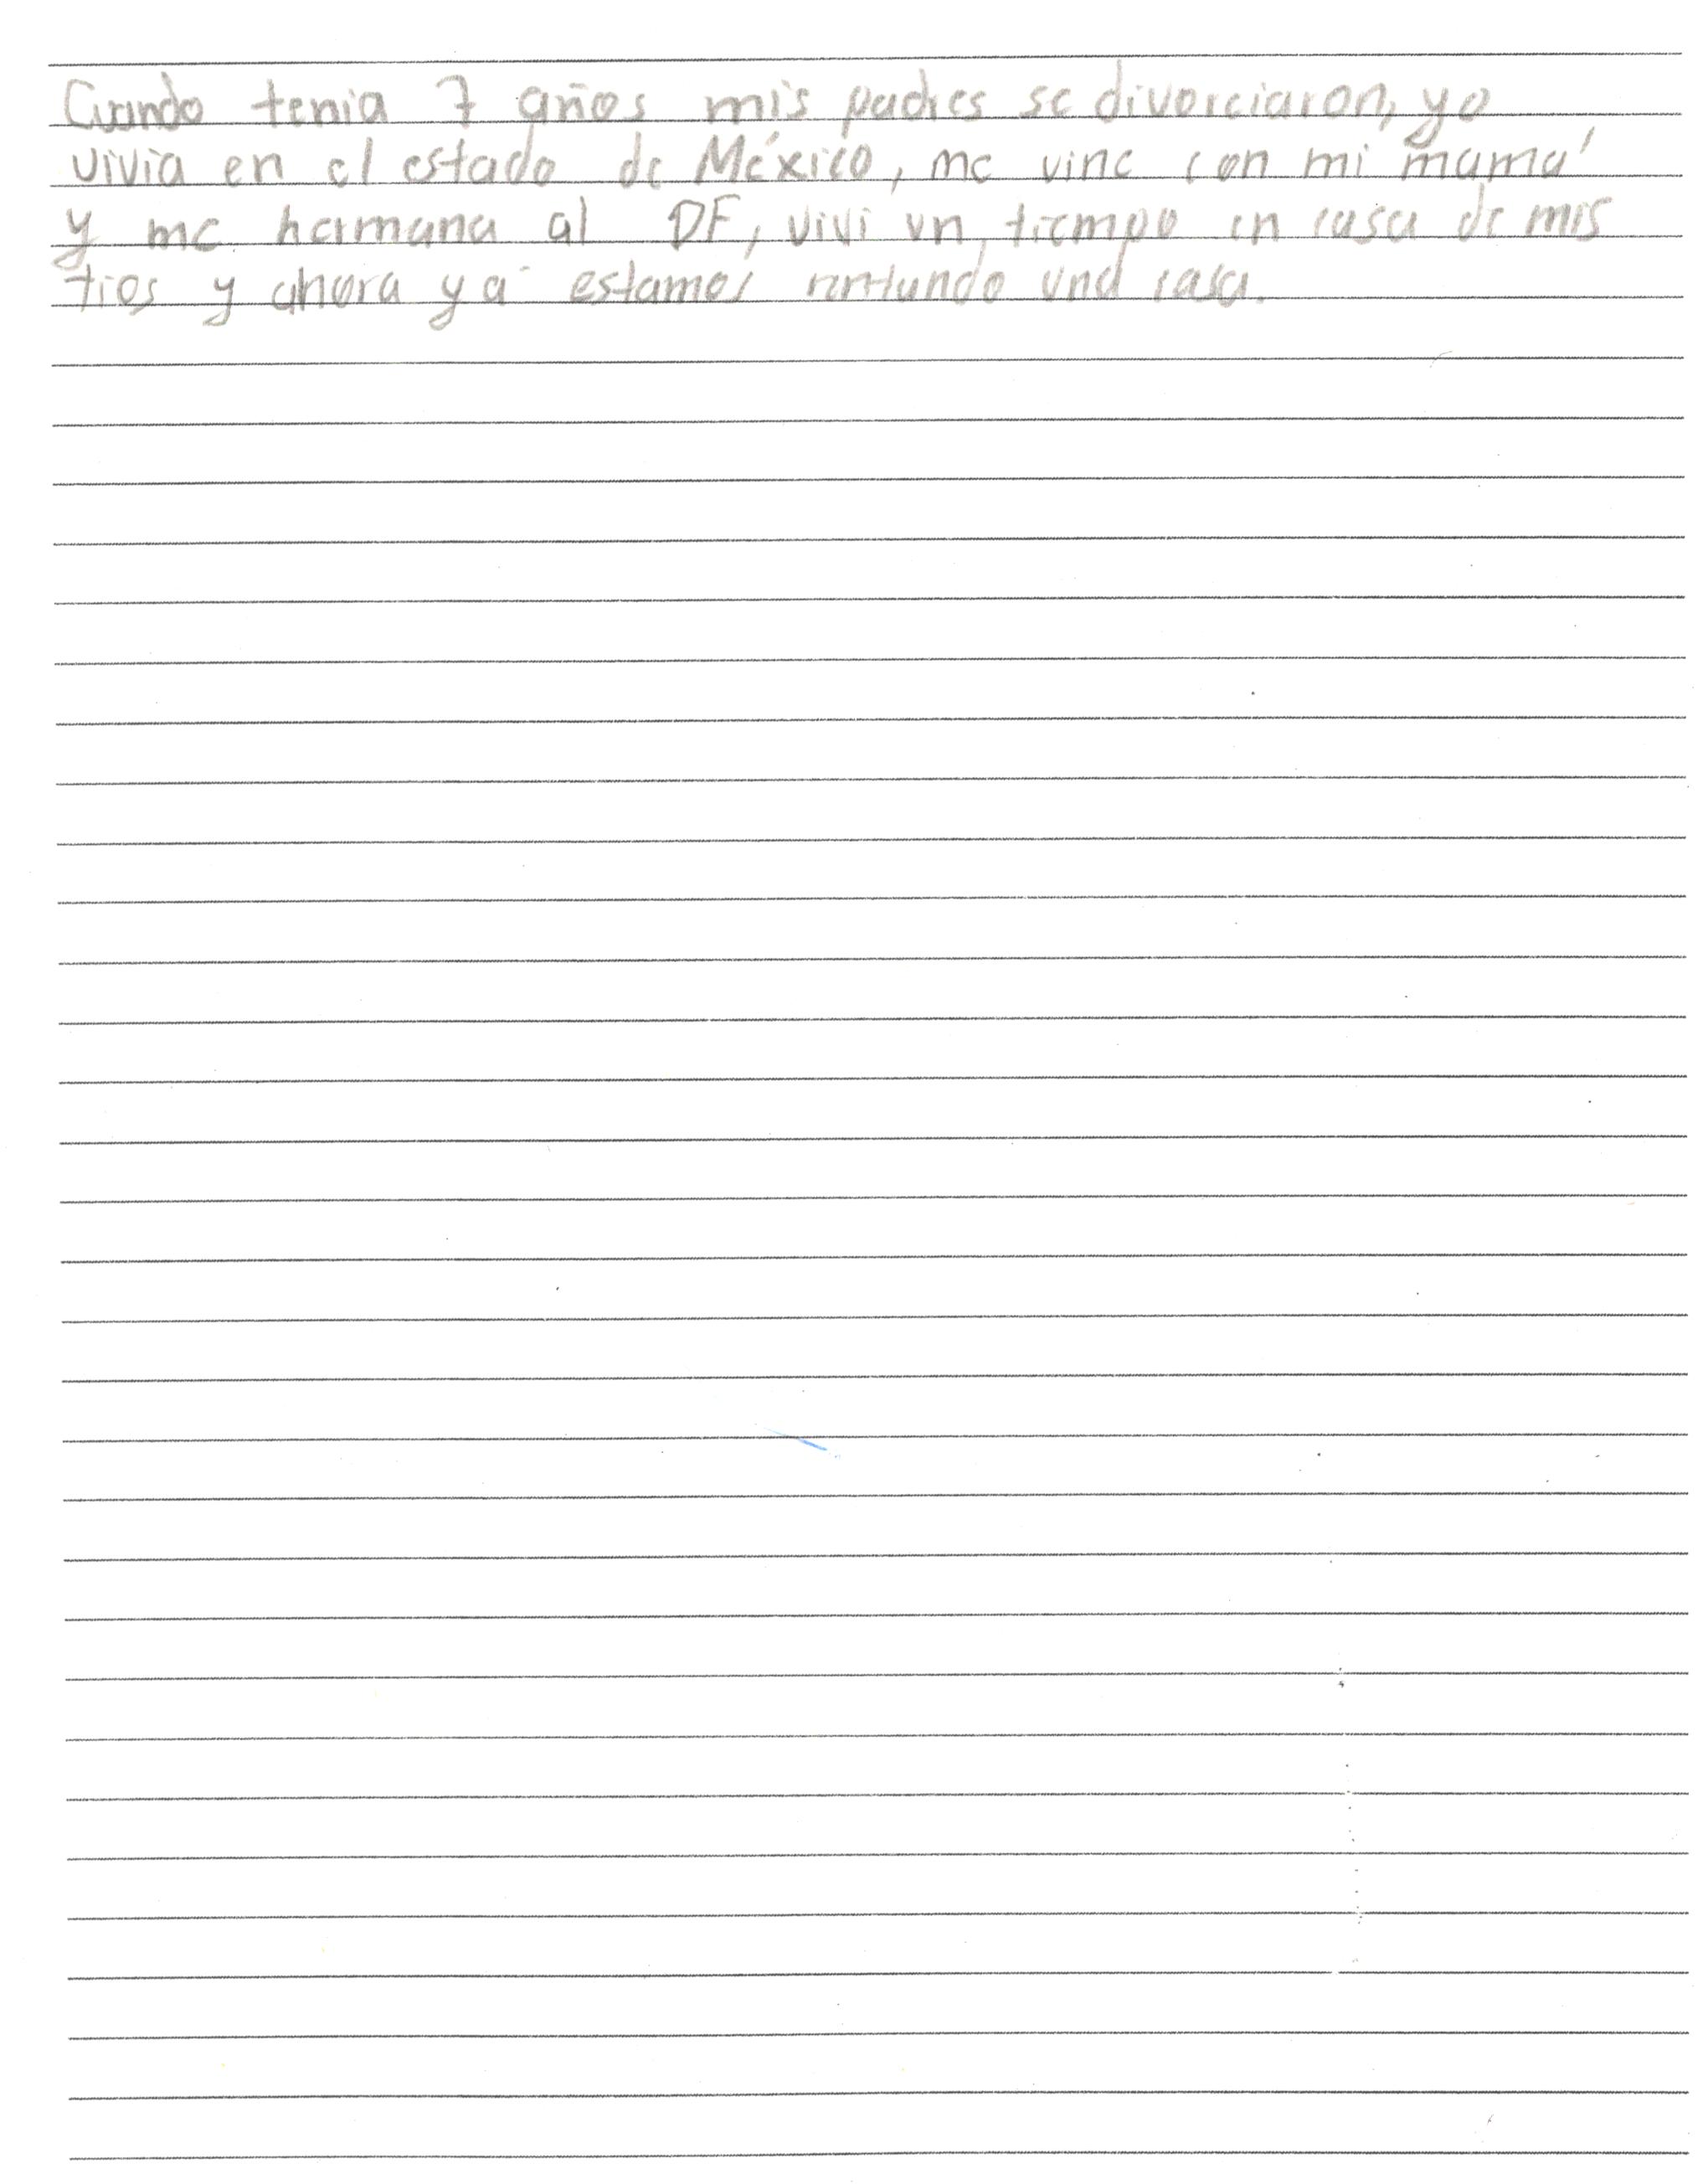 Cuando tenia 7 años mis padres se divorciaron, yo
vivia en el estado de México, me vine con mi mamá
y me hermana al DF, vivi un tiempo en casa de mis
tios y ahora ya estamos rentando una casa.